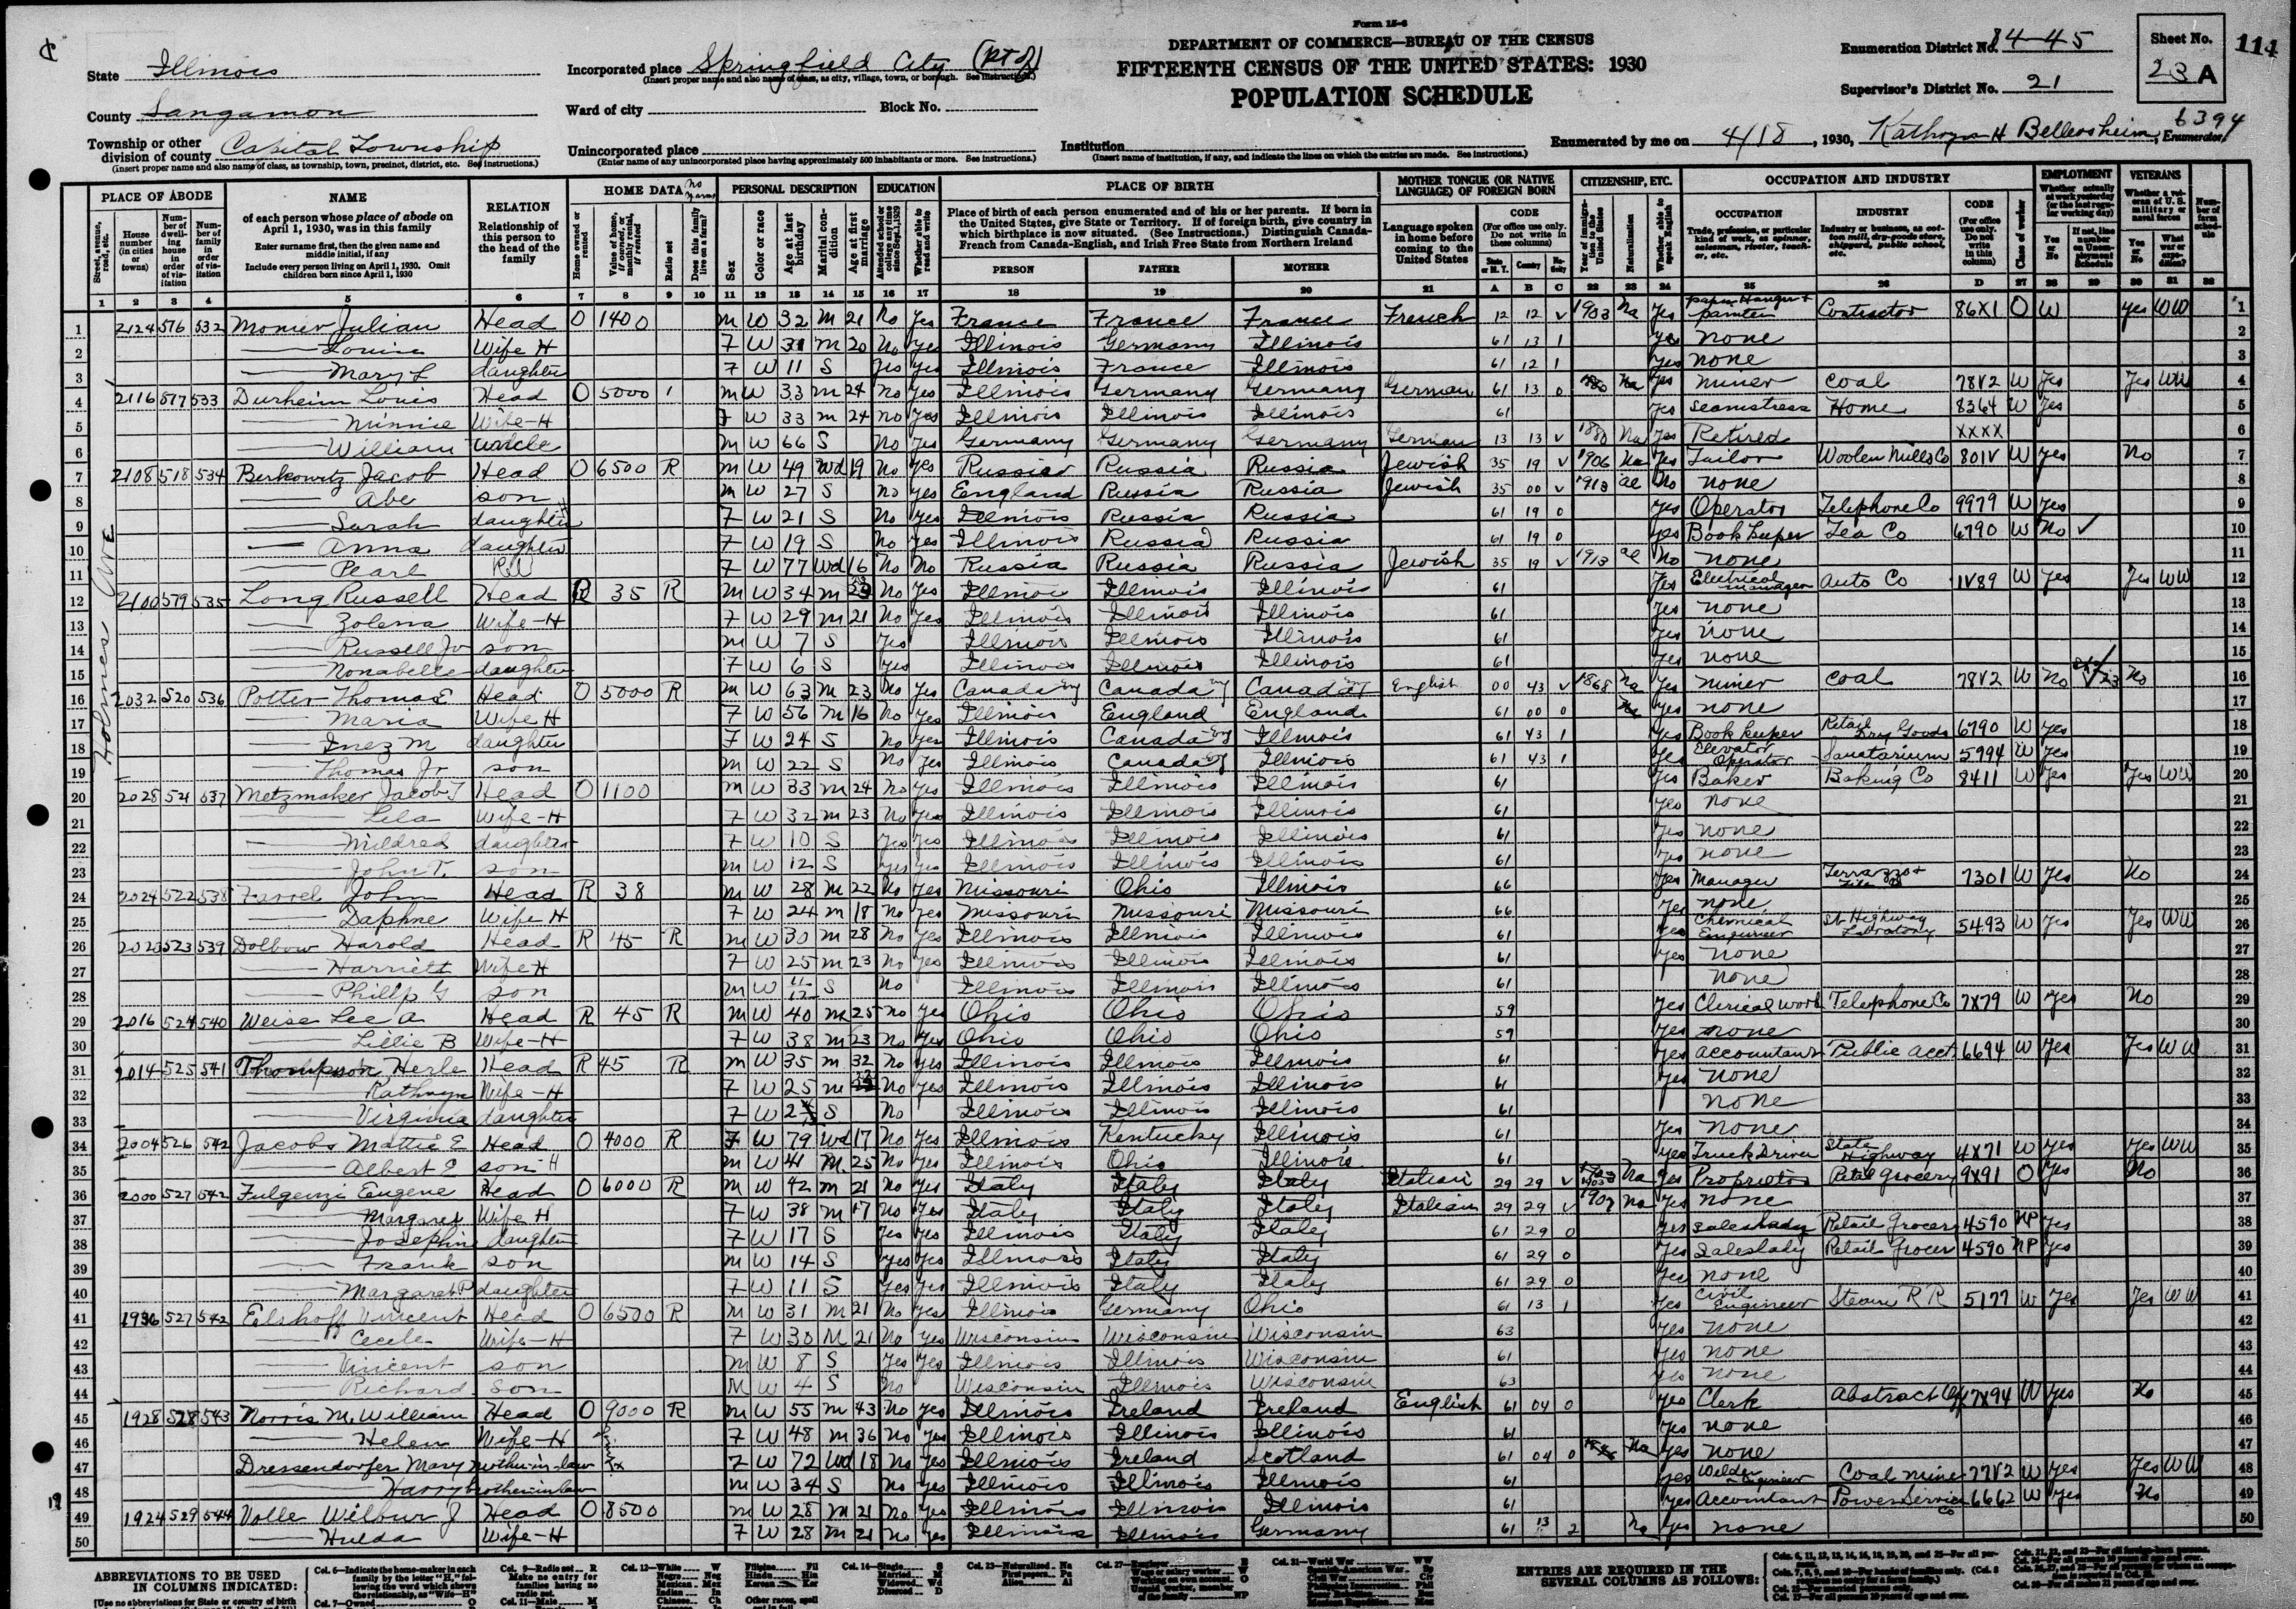 Form 15-6
DEPARTMENT OF COMMERCE—BUREAU OF THE CENSUS
FIFTEENTH CENSUS OF THE UNITED STATES: 1930
POPULATION SCHEDULE
State Illinois
County Sangamon
Township or other division of county Capital Township
(Insert proper name and also name of class, as township, town, precinct, district, etc. See instructions.)
Incorporated place Springfield City (pt of)
(Insert proper name and also name of class, as city, village, town, or borough. See instructions.)
Ward of city
Block No.
Unincorporated place
(Enter name of any unincorporated place having approximately 500 inhabitants or more. See instructions.)
Institution
(Insert name of institution, if any, and indicate the lines on which the entries are made. See instructions.)
Enumeration District No. 84-45
Supervisor's District No. 21
Sheet No. 23 A
114
6394
Enumerated by me on 4/18, 1930, Kathryn H Bellersheim, Enumerator
PLACE OF ABODE
NAME
of each person whose place of abode on April 1, 1930, was in this family
Enter surname first, then the given name and middle initial, if any
Include every person living on April 1, 1930. Omit children born since April 1, 1930
RELATION
Relationship of this person to the head of the family
HOME DATA
PERSONAL DESCRIPTION
EDUCATION
PLACE OF BIRTH
Place of birth of each person enumerated and of his or her parents. If born in the United States, give State or Territory. If of foreign birth, give country in which birthplace is now situated. (See Instructions.) Distinguish Canada-French from Canada-English, and Irish Free State from Northern Ireland
PERSON FATHER MOTHER
MOTHER TONGUE (OR NATIVE LANGUAGE) OF FOREIGN BORN
Language spoken in home before coming to the United States
CODE (For office use only. Do not write in these columns)
CITIZENSHIP, ETC.
OCCUPATION AND INDUSTRY
OCCUPATION INDUSTRY CODE
EMPLOYMENT
VETERANS
Holmes Ave
1 2124 576 532 Monier Julian Head O 1400 M W 32 M 21 No Yes France France France French 12 12 V 1903 Na Yes Paper Hanger + painter Contractor 86X1 O W Yes WW
2 Louise Wife H F W 31 M 20 No Yes Illinois Germany Illinois 61 13 1 Yes None
3 Mary L daughter F W 11 S Yes Yes Illinois France Illinois 61 12 1 Yes None
4 2116 577 533 Durheim Louis Head O 5000 M W 33 M 24 No Yes Illinois Germany Germany German 61 13 0 Na Yes Miner Coal 78V2 W Yes Yes WW
5 Minnie Wife-H F W 33 M 24 No Yes Illinois Illinois Illinois 61 Yes Seamstress Home 8364 W Yes
6 William Uncle M W 66 S No Yes Germany Germany Germany German 13 13 V 1880 Na Yes Retired XXXX
7 2108 518 534 Berkowitz Jacob Head O 6500 R M W 49 Wd 19 No Yes Russia Russia Russia Jewish 35 19 V 1906 Na Yes Tailor Woolen Mills Co 801V W Yes No
8 Abe son M W 27 S No Yes England Russia Russia Jewish 35 00 V 1913 al No None
9 Sarah daughter F W 21 S No Yes Illinois Russia Russia 61 19 0 Yes Operator Telephone Co 9979 W Yes
10 Anna daughter F W 19 S No Yes Illinois Russia Russia 61 19 0 Yes Book keeper Tea Co 6790 W No
11 Pearl F W 77 Wd 16 No No Russia Russia Russia Jewish 35 19 V 1913 al No None
12 2100 579 535 Long Russell Head R 35 R M W 34 M No Yes Illinois Illinois Illinois 61 Yes Electrical manager Auto Co 1V89 W Yes Yes WW
13 Zolena Wife-H F W 29 M 21 No Yes Illinois Illinois Illinois 61 Yes None
14 Russell Jr son M W 7 S Yes Illinois Illinois Illinois 61 Yes None
15 Nonabelle daughter F W 6 S Yes Illinois Illinois Illinois 61 Yes None
16 2032 520 536 Potter Thomas E Head O 5000 R M W 63 M 23 No Yes Canada Eng Canada Eng Canada Eng English 00 43 V 1868 Na Yes Miner Coal 78V2 W No 23 No
17 Maria Wife H F W 56 M 16 No Yes Illinois England England 61 00 0 Yes None
18 Inez M daughter F W 24 S No Yes Illinois Canada Eng Illinois 61 43 1 Yes Book keeper Retail Dry Goods 6790 W Yes
19 Thomas Jr son M W 22 S No Yes Illinois Canada Eng Illinois 61 43 1 Yes Elevator Operator Sanatarium 5994 W Yes
20 2028 521 537 Metzmaker Jacob T Head O 1100 M W 33 M 24 No Yes Illinois Illinois Illinois 61 Yes Baker Baking Co 8411 W Yes Yes WW
21 Lela Wife-H F W 32 M 23 No Yes Illinois Illinois Illinois 61 Yes None
22 Mildred daughter F W 10 S Yes Yes Illinois Illinois Illinois 61 Yes None
23 John T. son M W 12 S Yes Yes Illinois Illinois Illinois 61 Yes None
24 2024 522 538 Farrel John Head R 38 M W 28 M 22 No Yes Missouri Ohio Illinois 66 Yes Manager Terrazzo + Tile 7301 W Yes No
25 Daphne Wife H F W 24 M 18 No Yes Missouri Missouri Missouri 66 Yes None
26 2020 523 539 Dolbow Harold Head R 45 R M W 30 M 28 No Yes Illinois Illinois Illinois 61 Yes Chemical Engineer St Highway Labratory 5493 W Yes Yes WW
27 Harriett Wife H F W 25 M 23 No Yes Illinois Illinois Illinois 61 Yes None
28 Phillip G son M W 11/12 S No Illinois Illinois Illinois 61 None
29 2016 524 540 Weise Lee A Head R 45 R M W 40 M 25 No Yes Ohio Ohio Ohio 59 Yes Clerical work Telephone Co 7X79 W Yes No
30 Lillie B Wife-H F W 38 M 23 No Yes Ohio Ohio Ohio 59 Yes None
31 2014 525 541 Thompson Herle Head R 45 R M W 35 M 32 No Yes Illinois Illinois Illinois 61 Yes Accountant Public Acct 6694 W Yes Yes WW
32 Kathryn Wife-H F W 25 M No Yes Illinois Illinois Illinois 61 Yes None
33 Virginia daughter F W S No Illinois Illinois Illinois 61 None
34 2004 526 542 Jacobs Mattie E Head O 4000 R F W 79 Wd 17 No Yes Illinois Kentucky Illinois 61 Yes None
35 Albert E son H M W 41 M 25 No Yes Illinois Ohio Illinois 61 Yes Truck Driver State Highway 4X71 W Yes Yes WW
36 2000 527 542 Fulgenzi Eugene Head O 6000 R M W 42 M 21 No Yes Italy Italy Italy Italian 29 29 V 1903 Na Yes Proprietor Retail Grocery 9X91 O Yes No
37 Margaret Wife H F W 38 M 17 No Yes Italy Italy Italy Italian 29 29 V 1907 Na Yes None
38 Josephine daughter F W 17 S Yes Yes Illinois Italy Italy 61 29 0 Yes Saleslady Retail Grocery 4590 NP Yes
39 Frank son M W 14 S Yes Yes Illinois Italy Italy 61 29 0 Yes Saleslady Retail Grocer 4590 NP Yes
40 Margaret P daughter F W 11 S Yes Yes Illinois Italy Italy 61 29 0 Yes None
41 1936 527 542 Elshoff Vincent Head O 6500 R M W 31 M 21 No Yes Illinois Germany Ohio 61 13 1 Yes Civil Engineer Steam RR 5177 W Yes Yes WW
42 Cecile Wife-H F W 30 M 21 No Yes Wisconsin Wisconsin Wisconsin 63 Yes None
43 Vincent son M W 8 S Yes Yes Illinois Illinois Wisconsin 61 Yes None
44 Richard Son M W 4 S No Wisconsin Illinois Wisconsin 63 Yes None
45 1928 528 543 Norris M. William Head O 9000 R M W 55 M 43 No Yes Illinois Ireland Ireland English 61 04 0 Yes Clerk Abstract Of 7X94 W Yes No
46 Helen Wife-H F W 48 M 36 No Yes Illinois Illinois Illinois 61 Yes None
47 Dressendorfer Mary Mother-in-law F W 72 Wd 18 No Yes Illinois Ireland Scotland 61 04 0 Na Yes None
48 Harry brother-in-law M W 34 S No Yes Illinois Illinois Illinois 61 Yes Engineer Coal mine 77V2 W Yes Yes WW
49 1924 529 544 Volle Wilbur J Head O 8500 M W 28 M 21 No Yes Illinois Illinois Illinois 61 Yes Accountant Power Service Co 6662 W Yes No
50 Hulda Wife-H F W 28 M 21 No Yes Illinois Illinois Germany 61 13 2 Na Yes None
ABBREVIATIONS TO BE USED IN COLUMNS INDICATED:
ENTRIES ARE REQUIRED IN THE SEVERAL COLUMNS AS FOLLOWS: